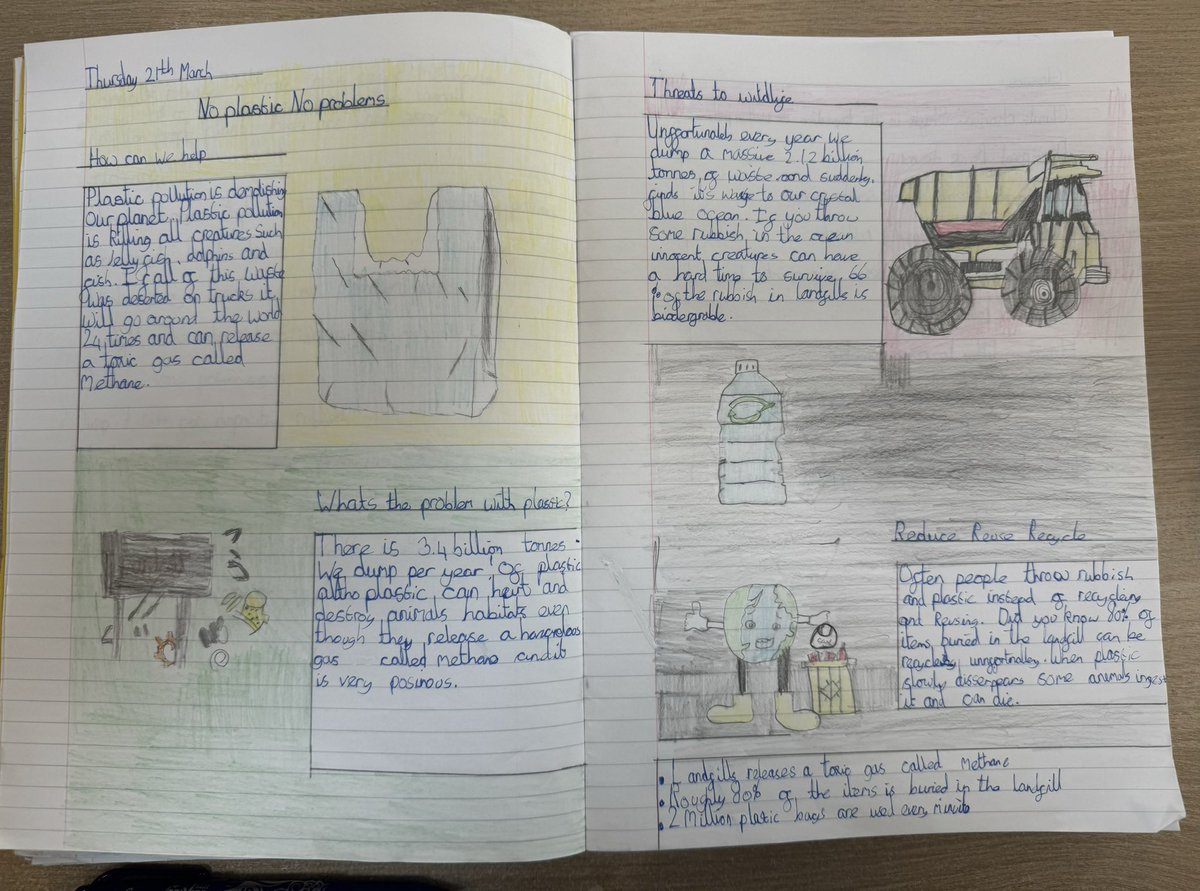 Thursday 21th March
No plastic No problems.
How can we help
Plastic pollution is demolishing
Our planet. Plastic pollution
is killing all creatures such
as Jelly fish, dolphins and
fish. If all of this waste
was deserted on trucks it
will go around the world
24 times and can release
a toxic gas called
Methane.
Whats the problem with plastic?
There is 3.4 billion tonnes
We dump per year! Of plastic
altho plastic can hurt and
destroy animals habitats even
though they release a
gas called methane and it
is very posinous.
Threats to wildlife
Unffortunately every year we
dump a massive 2.12 billion
tonnes of waste and suddenly
finds it's waye to our crystal
blue ocean. If you throw
some rubbish in the ocean
innocent creatures can have
a hard time to survive. 66
% of the rubbish in landfills is
biodergrable.
Reduce Reuse Recycle
Often people throw rubbish
and plastic instead of recycleing
and Reusing. Did you know 80% of
items buried in the landfill can be
recycled, When plastic
slowly dissepears some animals ingest
it and can die.
• Landfills releases a toxic gas called Methane
• Roughly 80% of the items is buried in the landfill
• 2 Million plastic bags are used every minute